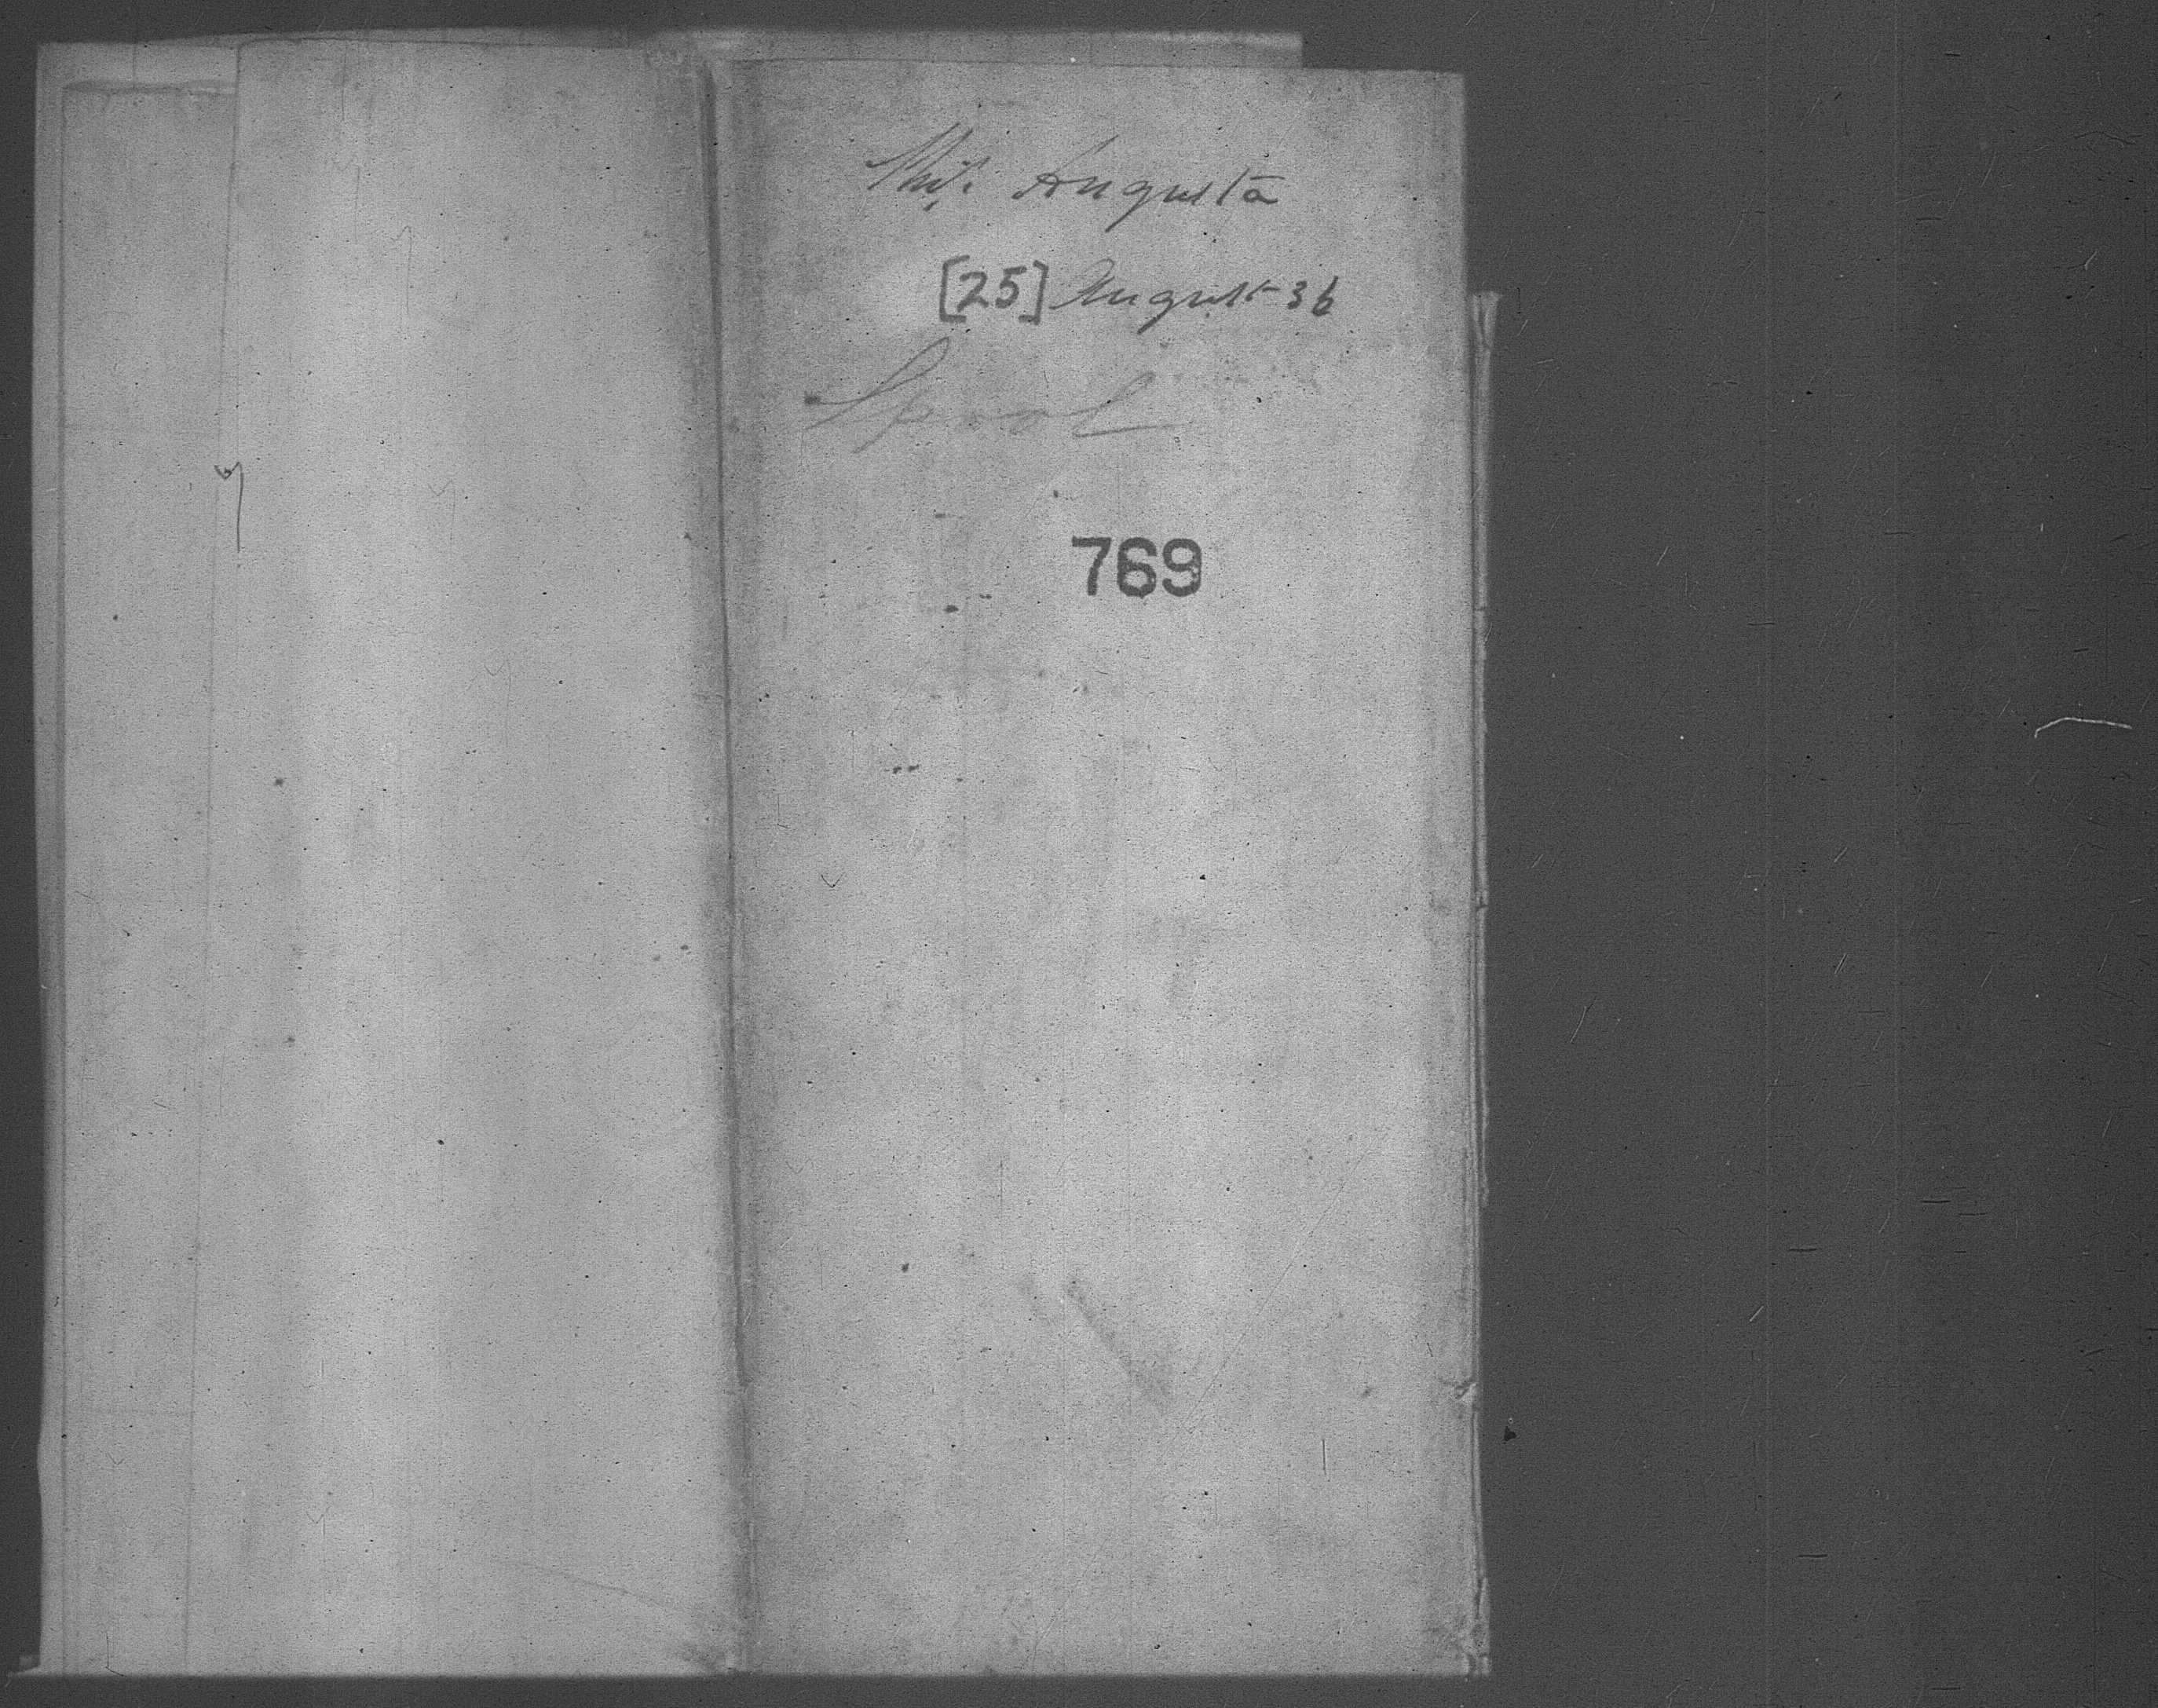 Ship Augusta
[25] August 36
769